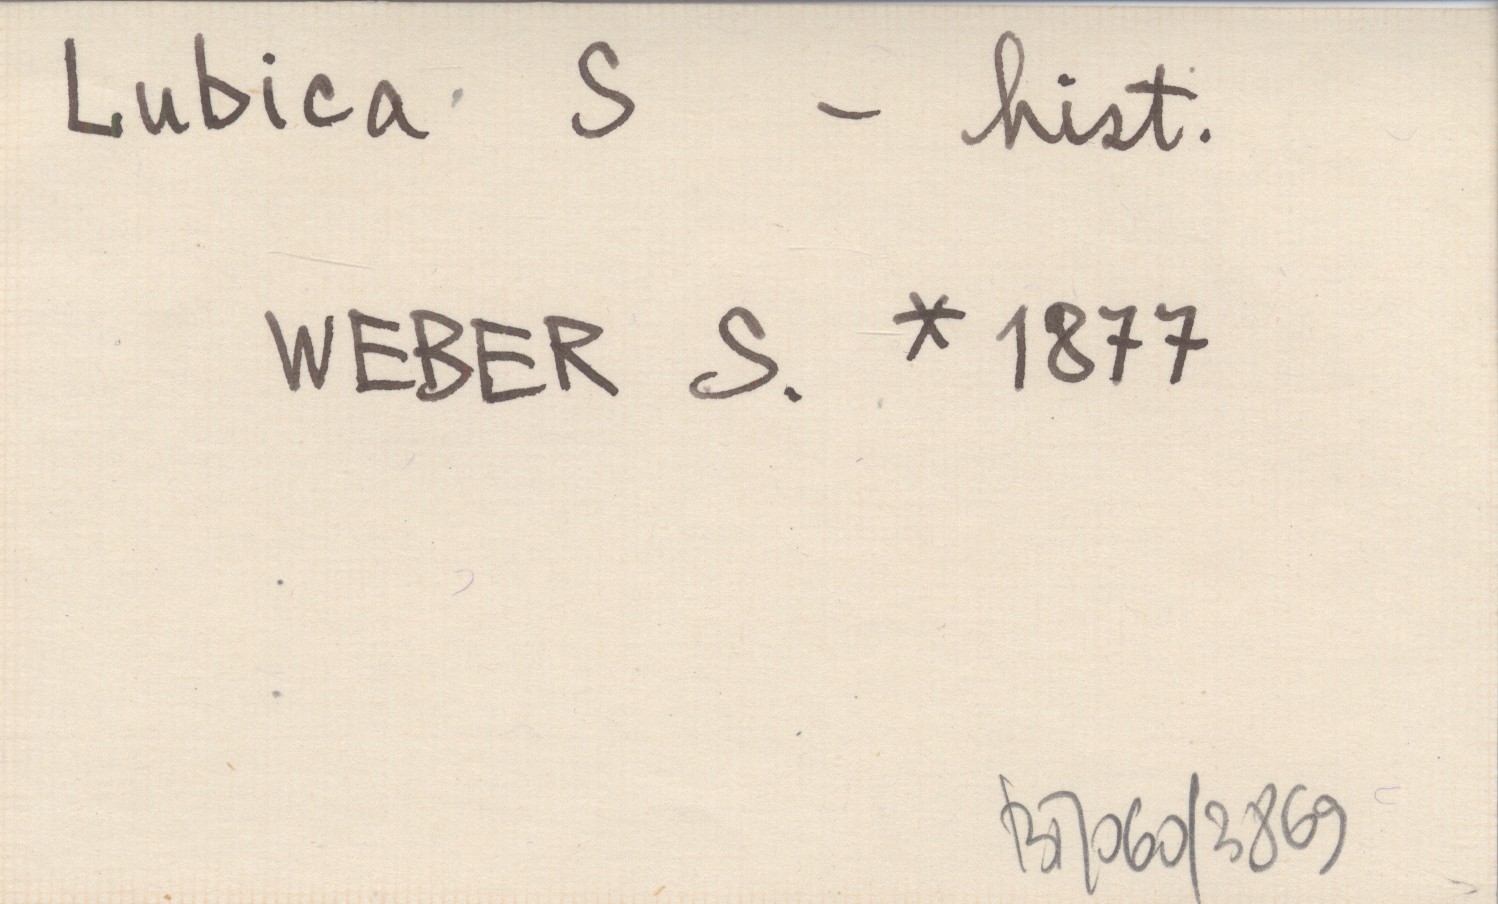 Lubica S - hist.
WEBER S. * 1877
060/3869